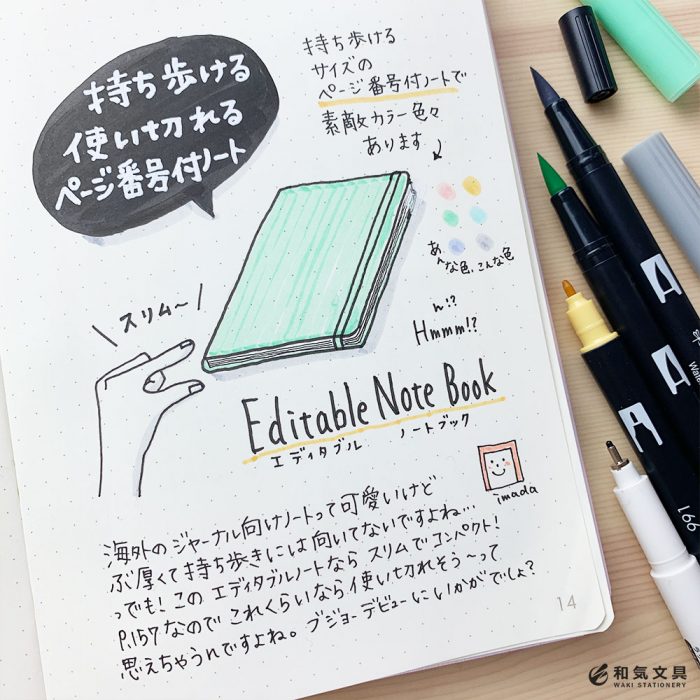 持ち歩ける
使い切れる
ページ番号付ノート
持ち歩ける
サイズの
ページ番号付ノートで
素敵カラー色々
あります
あんな色、こんな色
スリム〜
ん!?
Hmmm!?
Editable Note Book
エディタブル ノートブック
imada
海外のジャーナル向けノートって可愛いけど
ぶ厚くて持ち歩きには向いてないですよね…
っでも！このエディタブルノートならスリムでコンパクト！
P.157なのでこれくらいなら使い切れそう〜って
思えちゃうんですよね。ブジョーデビューにいかがでしょ？
14
166
和気文具
WAKI STATIONERY